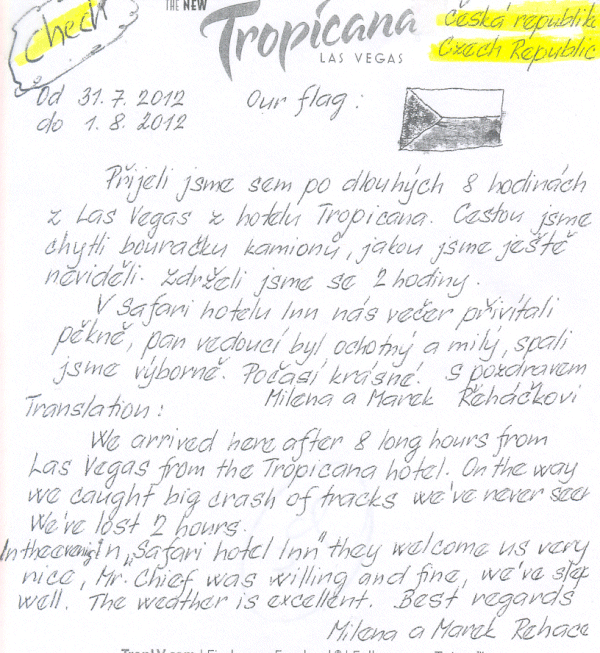 chech
THE NEW
Tropicana
LAS VEGAS
Česká republik
Czech Republic
Od 31.7.2012
do 1.8.2012
Our flag:
Přijeli jsme sem po dlouhých 8 hodinách
z Las Vegas z hotelu Tropicana. Cestou jsme
chytli bouračku kamionů, jakou jsme ještě
neviděli. Zdrželi jsme se 2 hodiny.
V Safari hotelu Inn nás večer přivítali
pěkně, pan vedoucí byl ochotný a milý, spali
jsme výborně. Počasí krásné. S pozdravem
Milena a Marek Řeháčkovi
Translation:
We arrived here after 8 long hours from
Las Vegas from the Tropicana hotel. On the way
we caught big crash of tracks we've never seen
We've lost 2 hours.
In the evening In „Safari hotel Inn" they welcome us very
nice, Mr. Chief was willing and fine, we've slep
well. The weather is excellent. Best regards
Milena a Marek Rehace